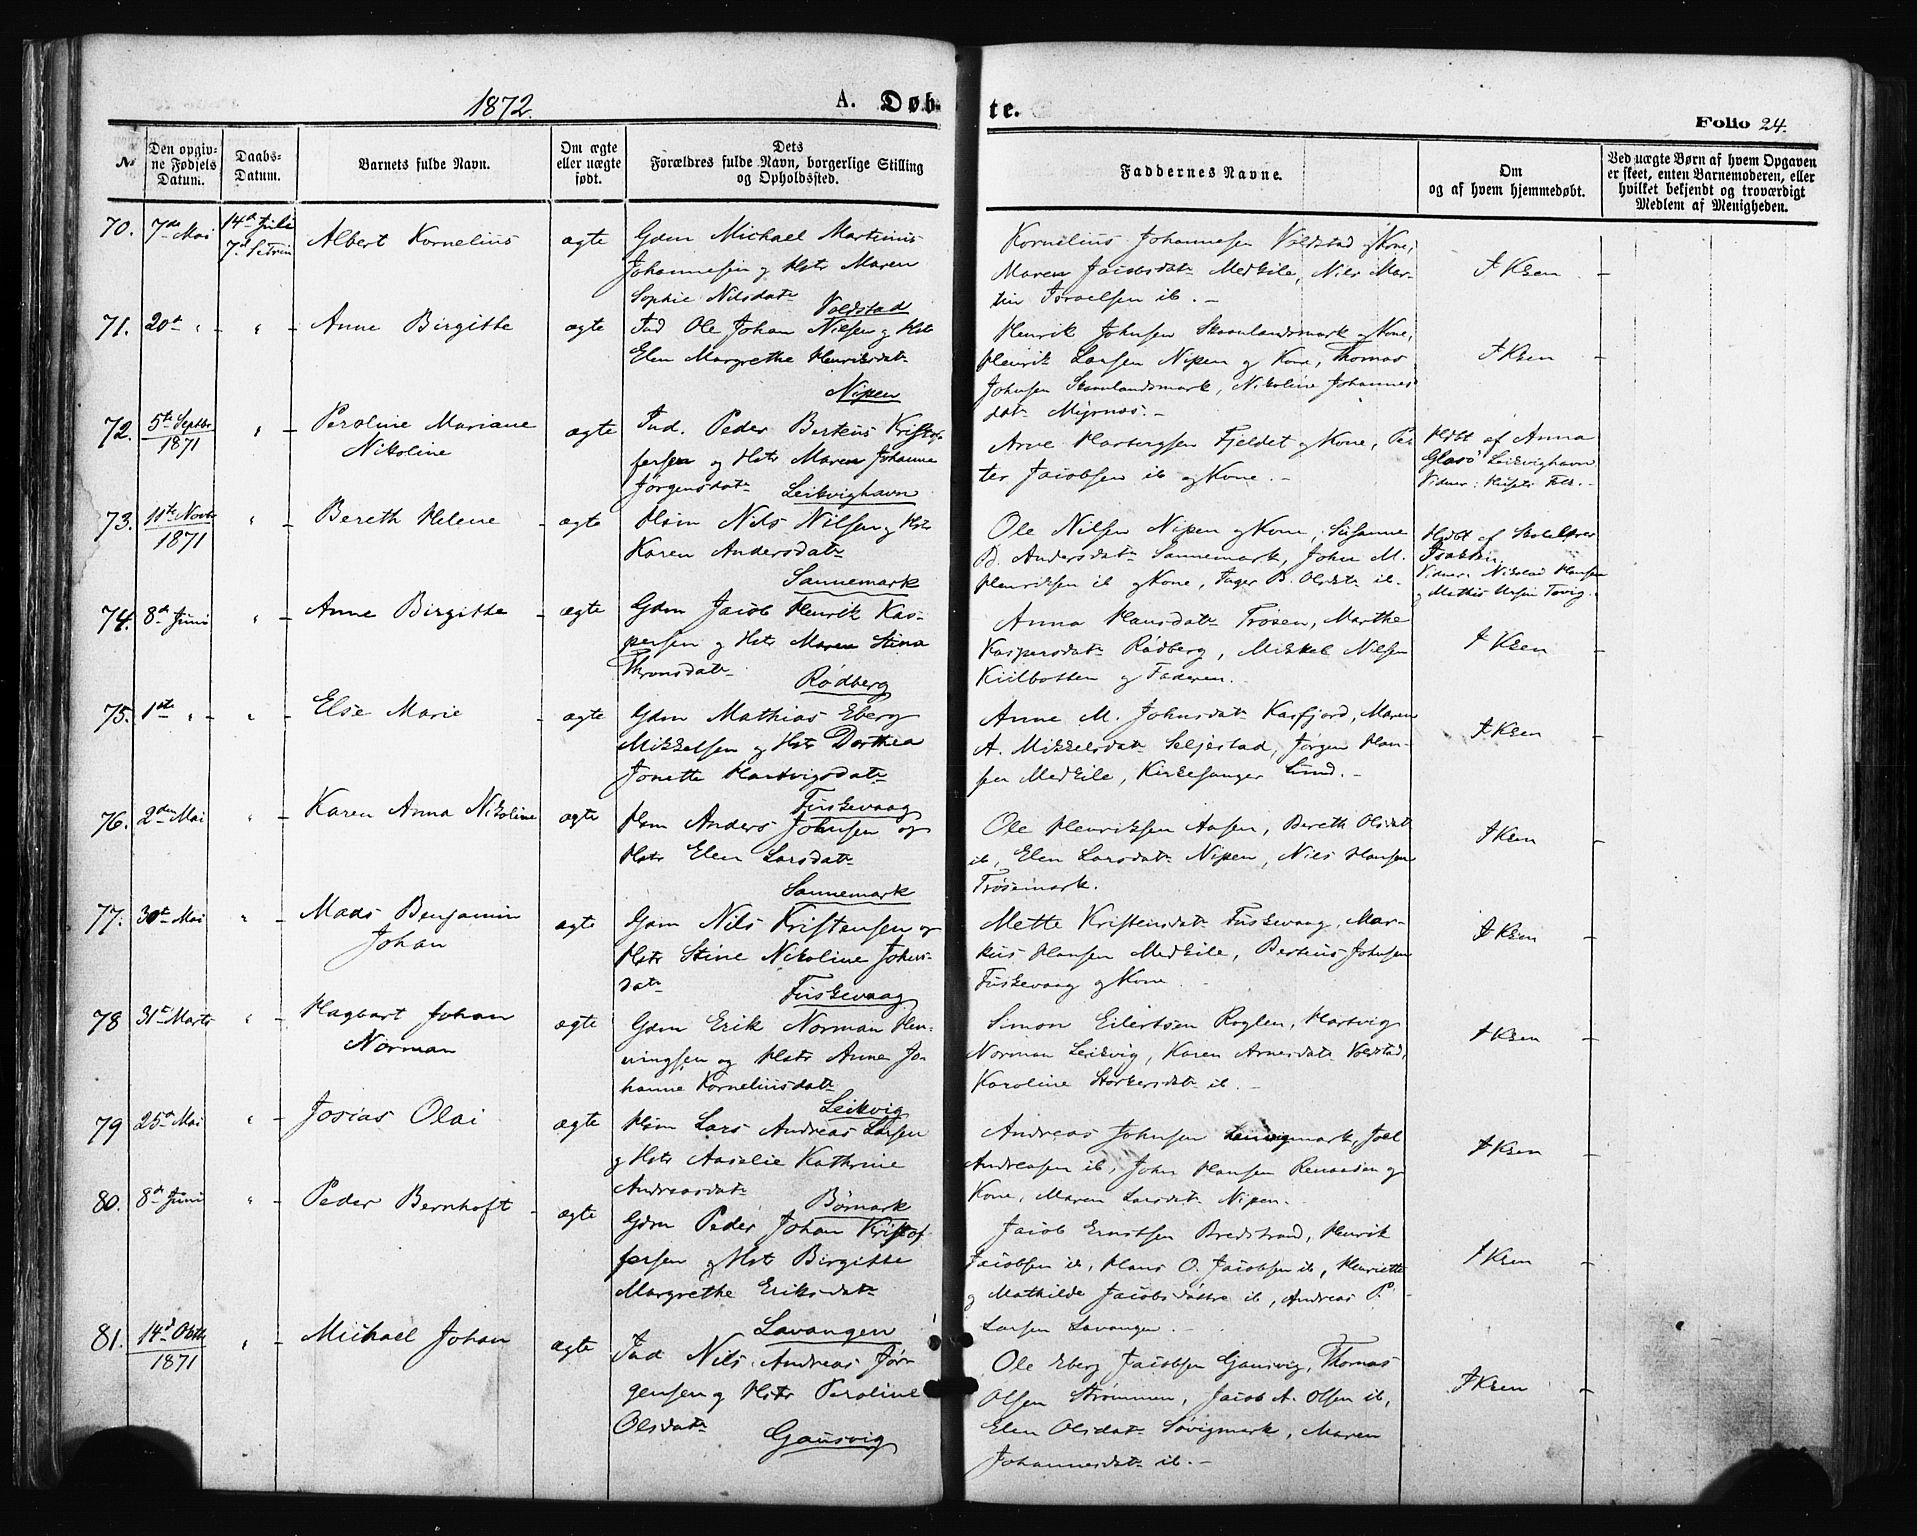 1872.
A. Døb-
te.
Folio 24.
No
Den opgiv-
ne Fødsels
Datum.
Daabs-
Datum.
Barnets fulde Navn.
Om ægte
eller uægte
født.
Dets
Forældres fulde Navn, borgerlige Stilling
og Opholdssted.
Faddernes Navne.
Om
og af hvem hjemmedøbt.
Ved uægte Børn af hvem Opgaven
er skeet, enten Barnemoderen, eller
hvilket bekjendt og troværdigt
Medlem af Menigheden.
70. 7de Mai 14d Juli
7d S. Trin
Albert Kornelius
ægte
Gdm Michael Martinus
Johannesen og Hstr Maren
Sophie Nilsdatr
Voldstad
Kornelius Johannesen Voldstad og Kone,
Maren Jacobsdatr Medkile, Nils Mar-
tin Israelsen ib. -
I Ksen -
71. 20d " - " -
Anne Birgitte
ægte
Ind Ole Johan Nilsen og Hstr
Elen Margrethe Henriksdatr
Nipen
Henrik Johnsen Skaanlandsmark og Kone,
Henrik Larsen Nipen og Kone, Thomas
Johnsen Skaanlandsmark, Nikoline Johannes
datr Myrnæs. -
I Ksen -
72. 5te Septbr
1871
" -
Peroline Mariane
Nikoline
ægte
Ind. Peder Berteus Kristof
fersen og Hstr Maren Johanna
Jørgensdatr Leikvighavn
Arne Hartvigsen Fjeldet og Kone, Pe
ter Jacobsen ib og Kone. -
Hdbt af Anna
Glasø Leikvighavn
73. 11te Novbr
1871
" -
Bereth Helene -
ægte
Hsm Nils Nilsen og Hstr
Karen Andersdatr
Sannemark
Ole Nilsen Nipen og Kone, Susanne
B. Andersdatr Sannemark, John M.
Henriksen ib og Kone, Inger B. Olsdtr ib. -
Hdbt af Skolelærer
Isaksen,
Vidner: Nikolai Hansen
74. 8d Juni " -
Anne Birgitte -
ægte
Gdm Jacob Henrik Kas-
persen og Hstr Maren Stina
Thronsdatr
Rødberg
Anna Hansdatr Trøsen, Marthe
Kaspersdatr Rødberg, Mikkel Nilsen
Kiilbotten og Faderen.
I Ksen -
75. 1ste " - " -
Else Marie -
ægte
Gdm Mathias Eberg
Mikkelsen og Hstr Dorthea
Jonette Hartvigsdatr
Fuskevaag
Anne M. Johnsdatr Kasfjord, Maren
A. Mikkelsdatr Seljestad, Jørgen Han-
sen Medkile, Kirkesanger Lund. -
I Ksen -
76. 2den Mai " -
Karen Anna Nikoline
ægte
Hsm Anders Johnsen og
Hstr Elen Larsdatr
Sannemark
Ole Henriksen Aasen, Bereth Olsdatr
ib, Elen Larsdatr Nipen, Nils Hansen
Trøsemark.
I Ksen -
77. 30te Mai " -
Mads Benjamin
Johan
ægte
Gdm Nils Kristensen og
Hstr Stine Nikoline Johns-
datr
Fuskevaag
Mette Kristensdatr Fuskevaag, Mar-
kus Hansen Medkile, Berteus Johnsen
Fuskevaag og Kone.
I Ksen -
78 31te Marts " -
Hagbart Johan
Norman
ægte
Gdm Erik Norman Hen-
ningsen og Hstr Anne Jo-
hanne Korneliusdatr
Leikvig
Simon Eilertsen Roglen, Hartvig
Norman Leikvig, Karen Arnesdatr Voldstad,
Karoline Storkersdatr ib. -
I Ksen -
79 25d Mai " -
Josias Olai
ægte
Hsm Lars Andreas Larsen
og Hstr Amalie Kathrine
Andreasdatr
Børnark
Andreas Johnsen mark, Joel
Andreasen ib, John Hansen Renaaden og
Kone, Maren Larsdatr Nipen. -
I Ksen -
80. 8d Juni " -
Peder Bernhoft -
ægte
Gdm Peder Johan Kristof
fersen og Hstr Birgitte
Margrethe Eriksdatr
Lavangen
Jacob Ernstsen Bredstrand, Henrik
Jacobsen ib, Hans O. Jacobsen ib, Henriette
og Mathilde Jacobsdøttre ib, Andreas P.
Larsen Lavangen.
I Ksen -
81. 14d Oktbr
1871
" -
Michael Johan
ægte
Ind Nils Andreas Jør-
gensen og Hstr Peroline
Olsdatr
Gausvig
Ole Eberg Jacobsen Gausvig, Thomas
Olsen Strømmen, Jacob A. Olsen ib,
Elen Olsdatr Søvigmark, Maren
Johannesdatr ib. -
I Ksen -